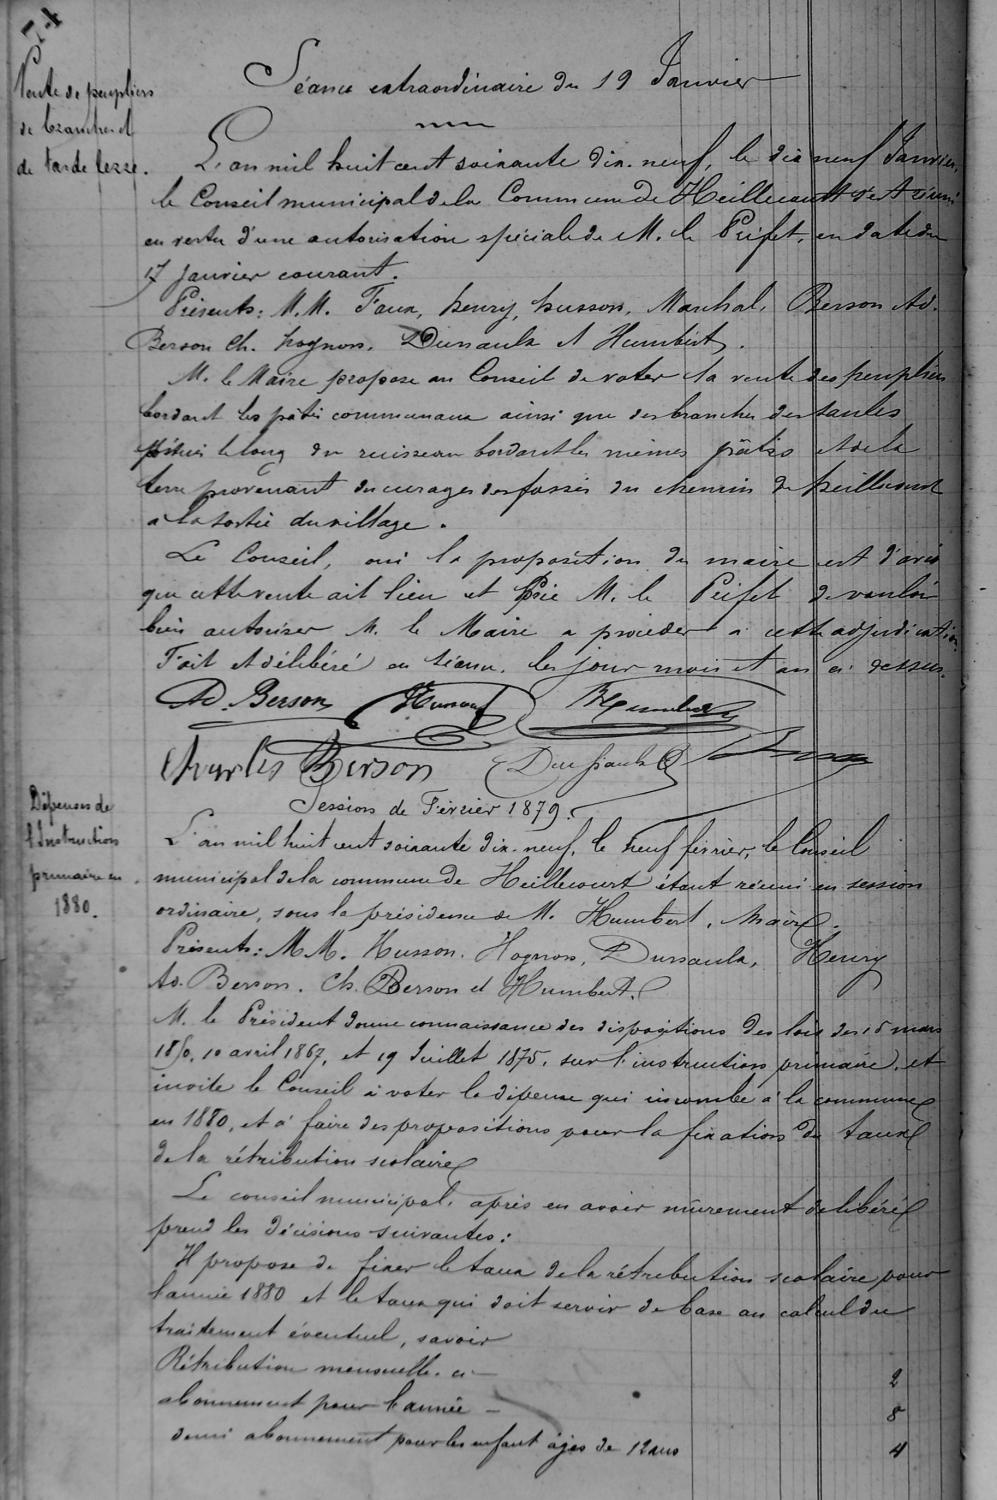 74
Vente de peupliers
de branches et
de tas de terre.
Séance extraordinaire du 19 Janvier
L'an mil huit cent soixante dix-neuf, le dix neuf Janvier,
le Conseil municipal de la Commune de Heillecourt s'est réuni
en vertu d'une autorisation spéciale de M. le Préfet, en date du
17 Janvier courant.
Présents: M.M. Faux, henry, husson, Marchal, Berson Ad.
Berson Ch. hognon, Dussaulx et Humbert.
M. le Maire propose au Conseil de voter la vente des peupliers
bordant les pâtis communaux ainsi que des branches des saules
situés le long du ruisseau bordant les mêmes pâtis et de la
terre provenant du curages des fossés du chemin de heillecourt
à la sortie du village.
Le Conseil, ouï la proposition du maire est d'avis
que cette vente ait lieu et prie M. le Préfet de vouloir
bien autoriser M. le Maire a procéder a cette adjudication.
Fait et délibéré en séance, les jour mois et an ci-dessus.
Ad. Berson Husson Humbert
Charles Berson Dussaulx
Session de Février 1879.
Dépenses de
l'Instruction
primaire en
1880.
L'an mil huit cent soixante dix-neuf, le neuf février, le Conseil
municipal de la commune de Heillecourt étant réuni en session
ordinaire, sous la présidence de M. Humbert, Maire.
Présents: MM. Husson, Hognon, Dussaulx, Henry
Ad. Berson, Ch. Berson et Humbert.
M. le Président donne connaissance des dispositions des lois des 15 mars
1850, 10 avril 1867, et 19 Juillet 1875, sur l'instruction primaire, et
invite le Conseil à voter la dépense qui incombe à la commune
en 1880, et à faire des propositions pour la fixation du taux
de la rétribution scolaire
Le conseil municipal, après en avoir mûrement délibéré
prend les décisions suivantes:
Il propose de fixer le taux de la rétribution scolaire pour
l'année 1880 et le taux qui doit servir de base au calcul du
traitement éventuel, savoir
Rétribution mensuelle - ci - 2
abonnement pour l'année - 8
demi abonnement pour les enfant âgés de 12 ans 4